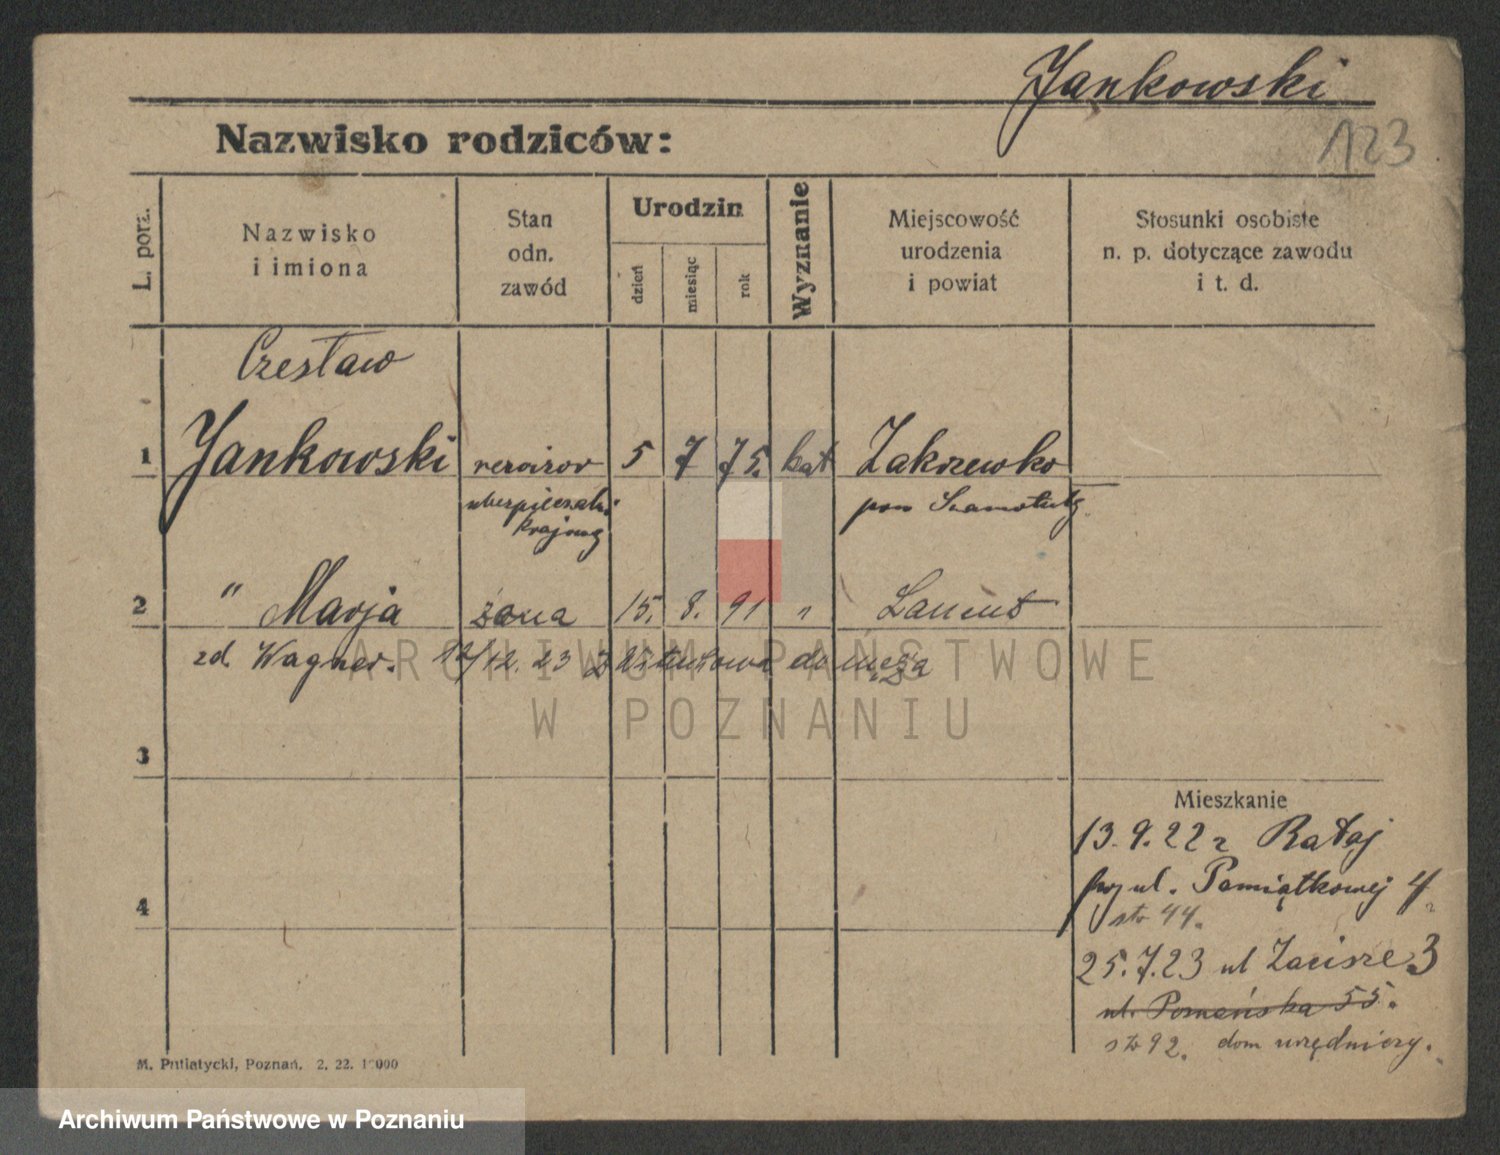 Jankowski
Nazwisko rodziców:
123
L. porz.
Nazwisko i imiona
Stan odn. zawód
Urodzin
dzień
miesiąc
rok
Wyznanie
Miejscowość urodzenia i powiat
Stosunki osobiste n. p. dotyczące zawodu i t. d.
Czesław
1 Jankowski rewizor 5 7 75. kat Zakrzewko
ubezpieczalni krajowej pow Szamotuły
2 " Marja żona 15. 8. 91 "
zd. Wagner. 12/12. 23 do męża
3
Mieszkanie
13.9.22 r Rataj
przy ul. Pamiątkowej 4
4
str 44.
25.7.23 ul Zacisze 3
ul. Poznańska 55.
str 92. dom urzędniczy.
M. Putiatycki, Poznań. 2. 22. 10000
ARCHIWUM PAŃSTWOWE
W POZNANIU
Archiwum Państwowe w Poznaniu